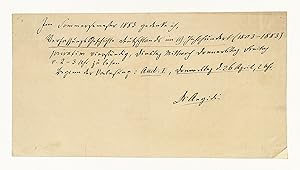 Im Sommersemester 1883 gedenke ich,
Verfassungsgeschichte Deutschlands im 19 Jahrhundert (1803-1883)
privatim vierstündig, Dienstag Mittwoch Donnerstag Freitag
v. 2-3 Uhr zu lesen.
Beginn der Vorlesung: Aud. 1, Donnerstag d. 26 April, 2 Uhr.
Aegidi